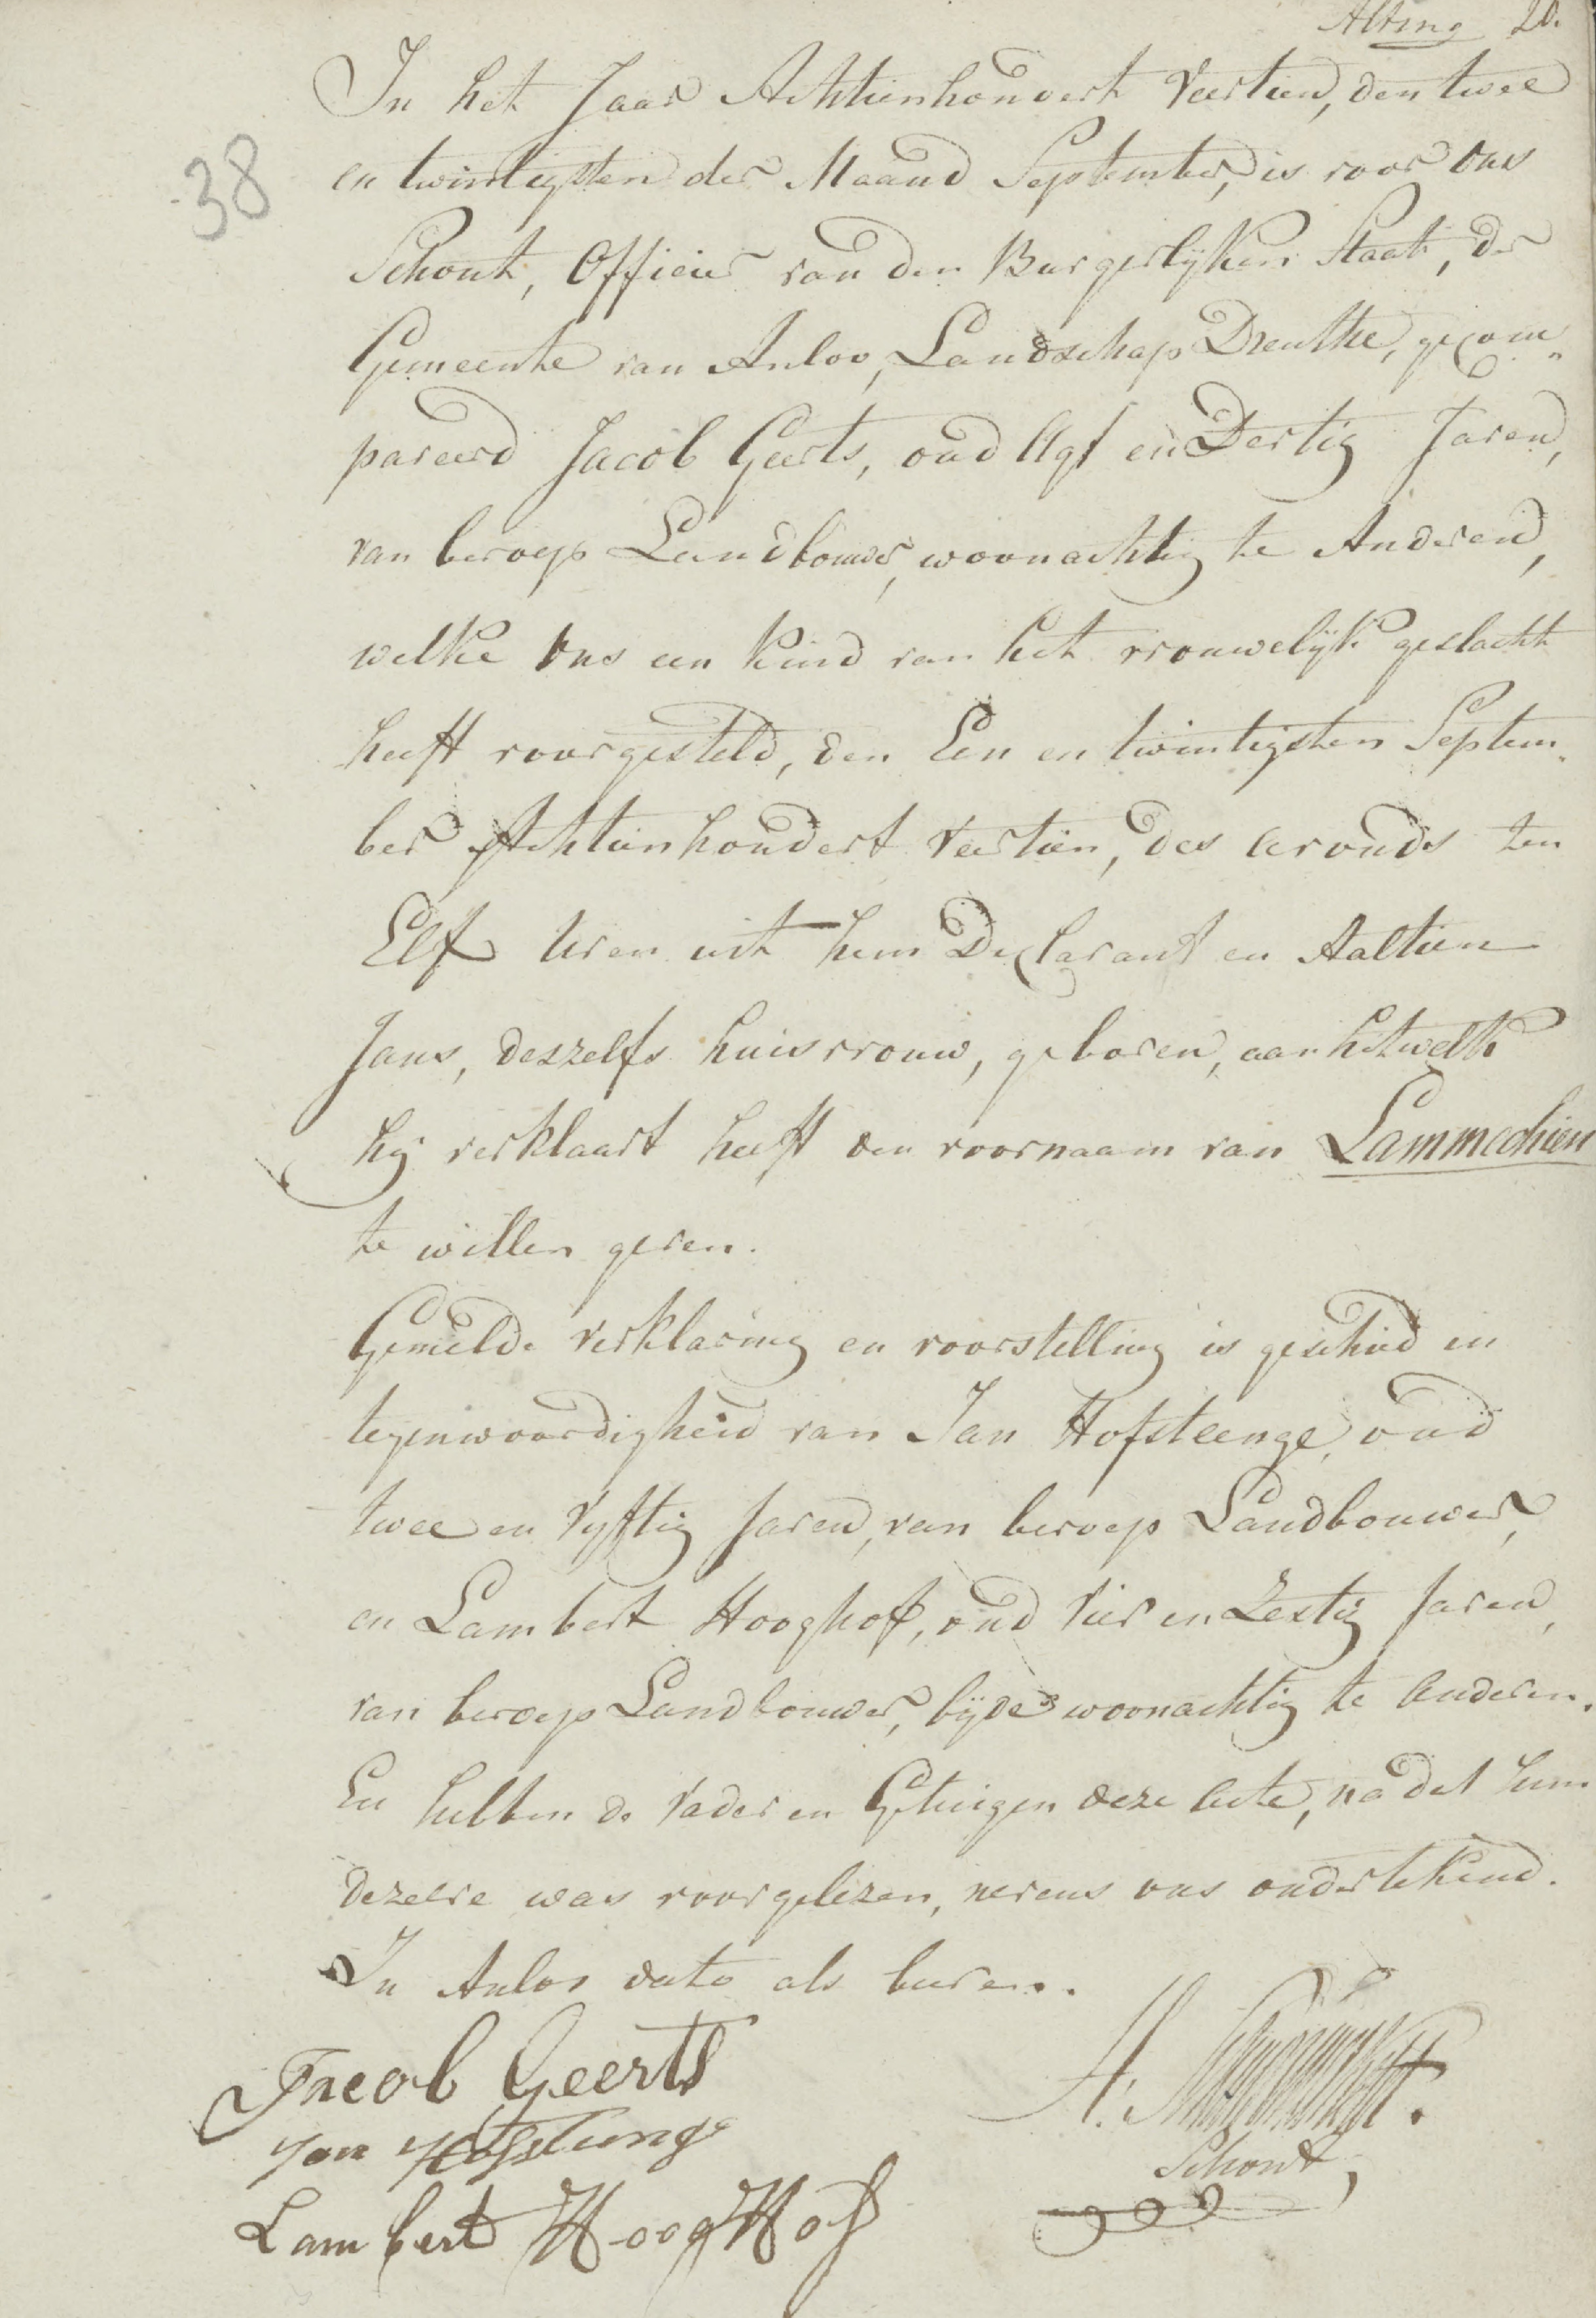 Alting 20.
38
In het Jaar Achttienhondert Veertien, den twee
en twintigsten der Maand September, is voor ons
Schout, Officier van den Burgerlijken Staat, der
Gemeente van Anloo, Landschap Drenthe, gecom„
pareerd Jacob Geerts, oud Agt en Dertig Jaren,
van beroep Landbouwer, woonachtig te Anderen,
welke ons een kind van het vrouwelijk geslacht
heeft voorgesteld, den Een en twintigsten Septem„
ber Achttienhondert Veertien, des avonds ten
Elf Uren uit hem Declarant en Aaltien
Jans, deszelfs huisvrouw, geboren, aan hetwelk
hij verklaart heeft den voornaam van Lammechien
te willen geven.
Gemelde verklaring en voorstelling is geschied in
tegenwoordigheid van Jan Hofsteenge, oud
twee en Vyftig Jaren, van beroep Landbouwer,
en Lambert Hooghof, oud Vier en Zestig Jaren,
van beroep Landbouwer, bijde woonachtig te Anderen.
En hebben de Vader en Getuigen deze Acte, na dat hun
dezelve was voorgelezen, nevens ons ondertekend.
In Anloo dato als boven.
Jacob Geerts
Jan Hofsteenge
Lambert HoogHof
A.
Schout,